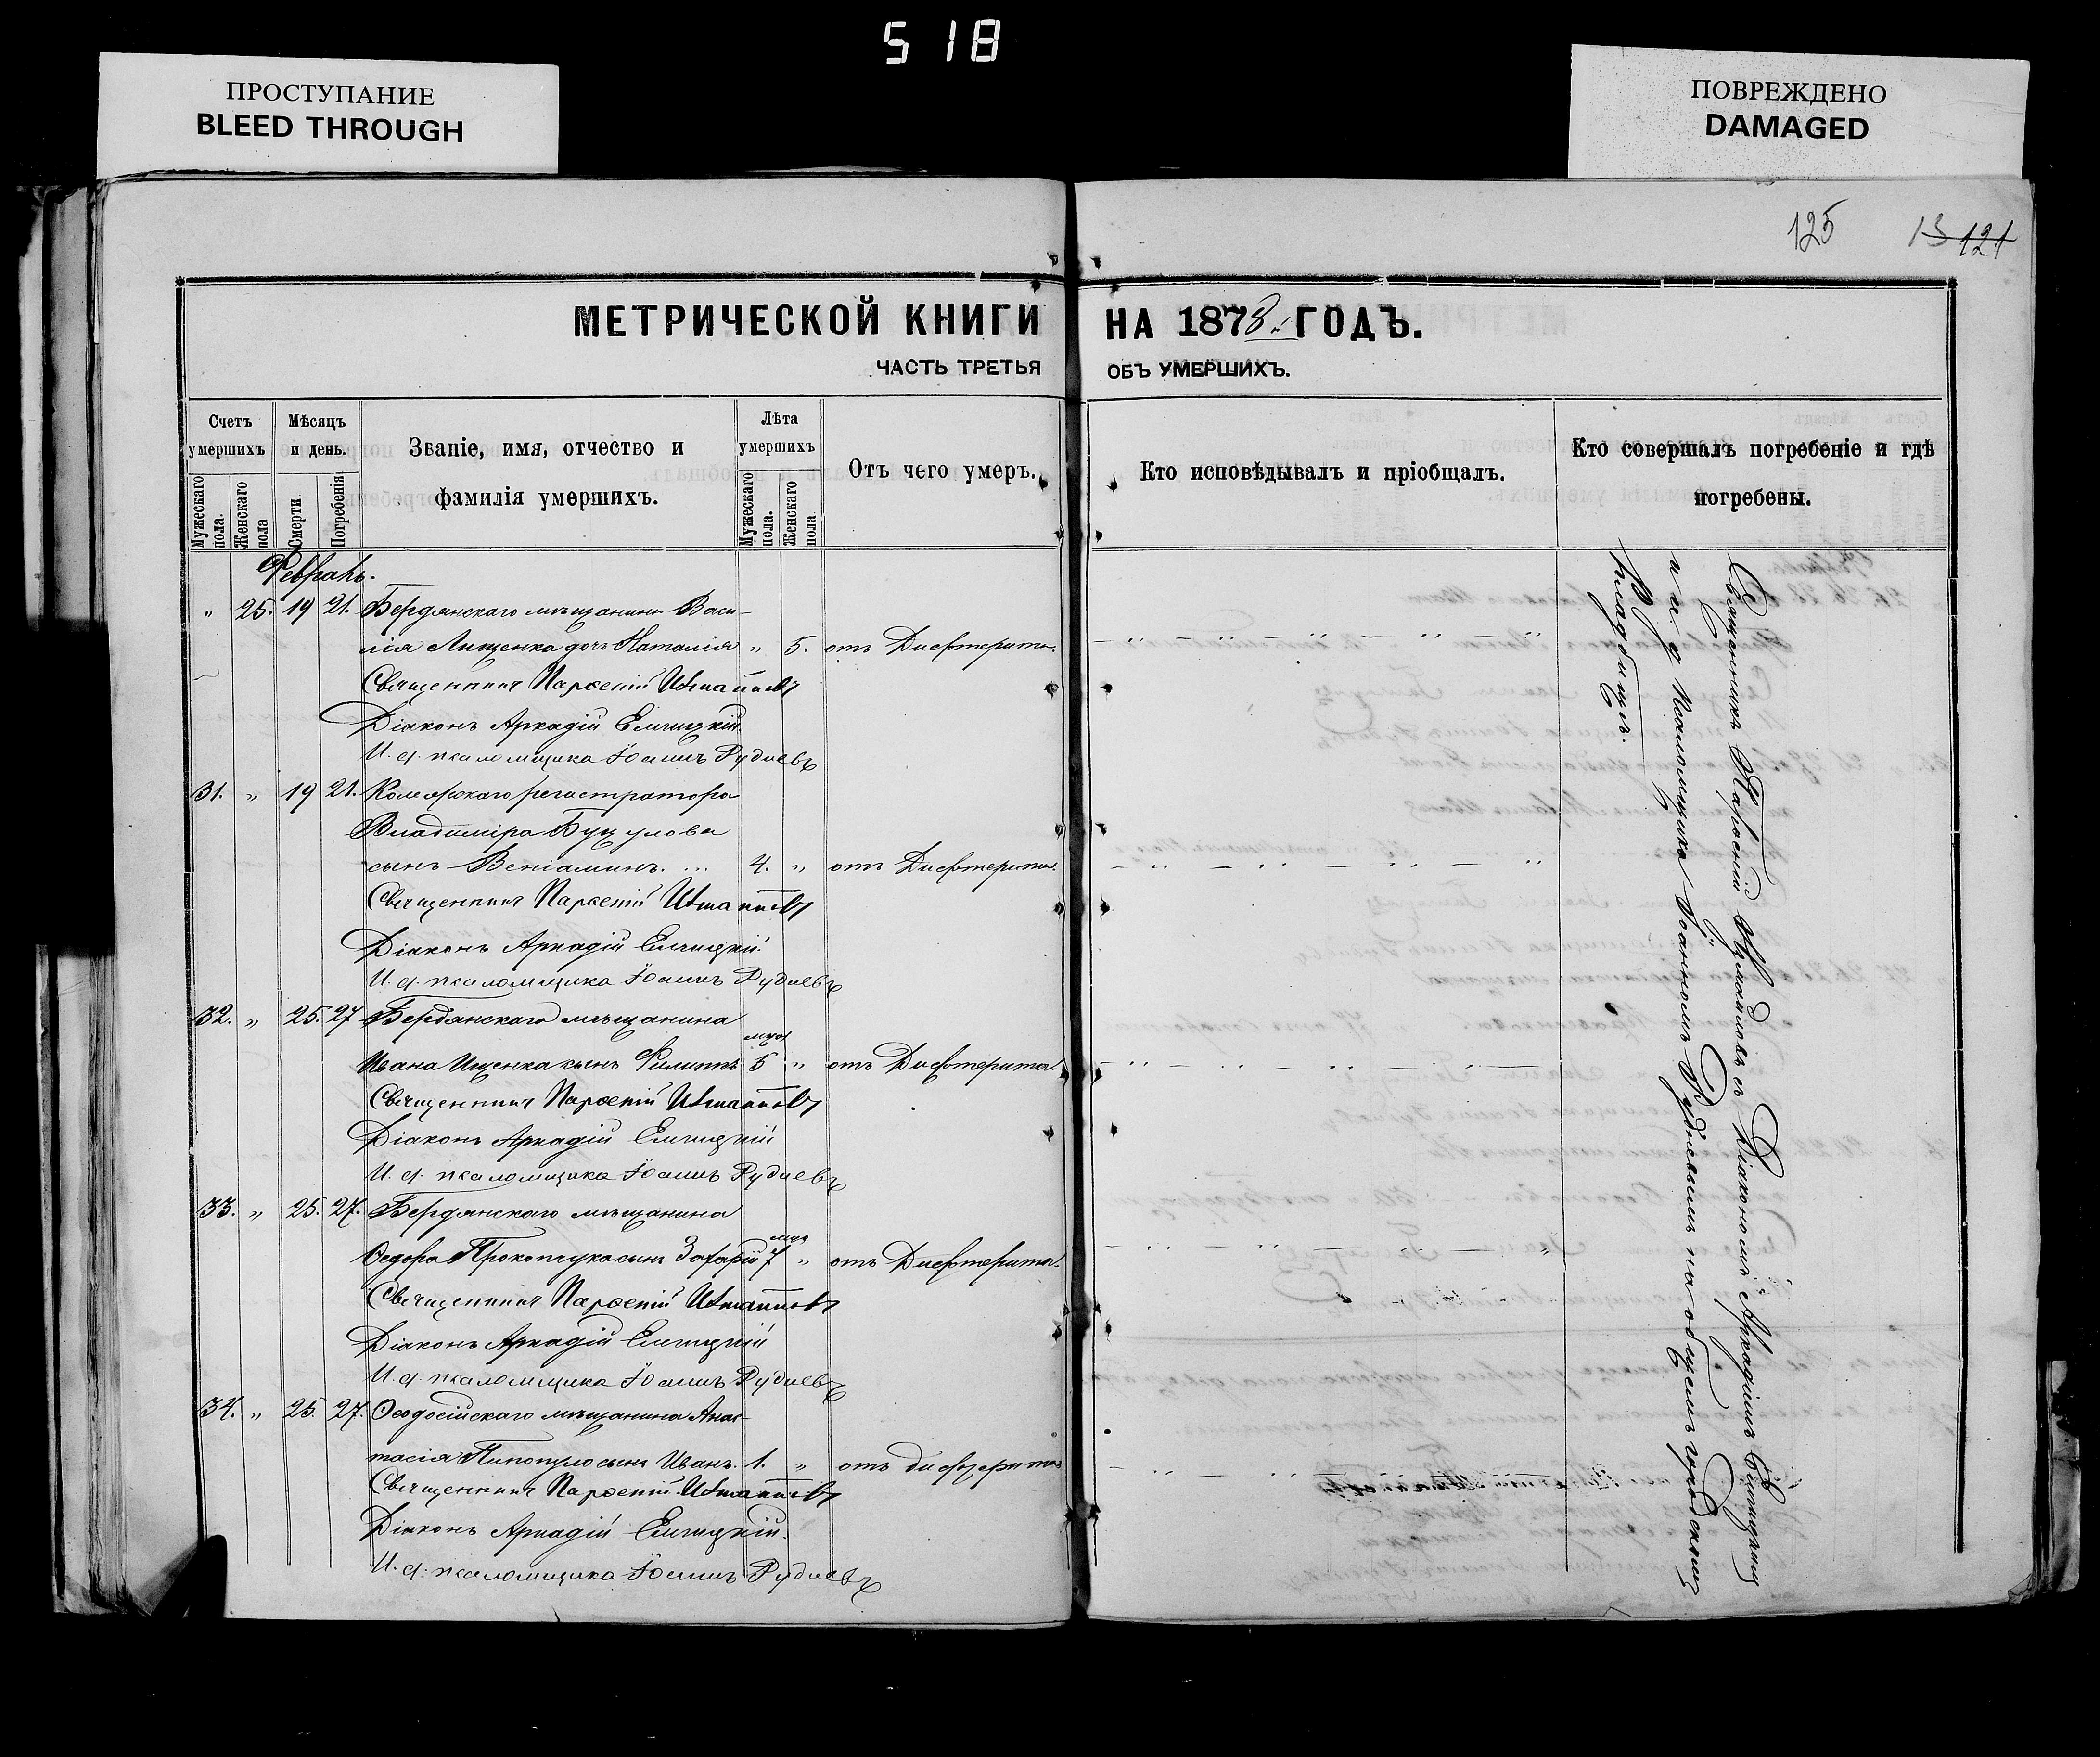 518
ПРОСТУПАНИЕ
BLEED THROUGH
ПОВРЕЖДЕНО
DAMAGED
125 13 121
МЕТРИЧЕСКОЙ КНИГИ НА 1878й ГОДЪ.
ЧАСТЬ ТРЕТЬЯ ОБЪ УМЕРШИХЪ.
Счетъ умершихъ
Мужескаго пола.
Женскаго пола
Мѣсяцъ и день.
Смерти
Погребенія
Званіе, имя, отчество и
фамилія умершихъ.
Лѣта умершихъ
Мужескаго пола.
Женскаго пола
Отъ чего умеръ.
Кто исповѣдывалъ и пріобщалъ.
Кто совершалъ погребеніе и гдѣ
погребены.
Февраль.
" 25. 19 21. Бердянскаго мѣщанина Васи-
лія Лищенка дочь Наталія " 5. отъ Дифтерита.
Священникъ Парѳеній
Діаконъ Аркадій Елчицкій.
И. д. псаломщика Іоаннъ Рудневъ
31. " 19 21. Колежскаго регистратора
Владиміра
сынъ Веніаминъ. ... 4. " отъ Дифтерита.
Священникъ Парѳеній
Діаконъ Аркадій Елчицкій
И. д. псаломщика Іоаннъ Рудневъ
32. " 25. 27 Бердянскаго мѣщанина
Ивана Ищенка сынъ Филиппъ 5 мця " отъ Дифтерита.
Священникъ Парѳеній
Діаконъ Аркадій Елчицкій
И. д. псаломщика Іоаннъ Рудневъ
33. " 25. 27. Бердянскаго мѣщанина
Ѳедора Прокопчука сынъ Захарій 7 мця " отъ Дифтерита.
Священникъ Парѳеній
Діаконъ Аркадій Елчицкій
И. д. псаломщика Іоаннъ Рудневъ
34. " 25. 27. Ѳеодосійскаго мѣщанина Анас-
тасія сынъ Иванъ. 1. " отъ дифтерита
Священникъ Парѳеній
Діаконъ Аркадій Елчицкій.
И. д. псаломщика Іоаннъ Рудневъ
Священникъ Парѳеній съ Діакономъ Аркадіимъ Елчицкимъ
и и. д. Псаломщика Іоанномъ Рудневымъ на общемъ городскомъ
кладбищѣ.